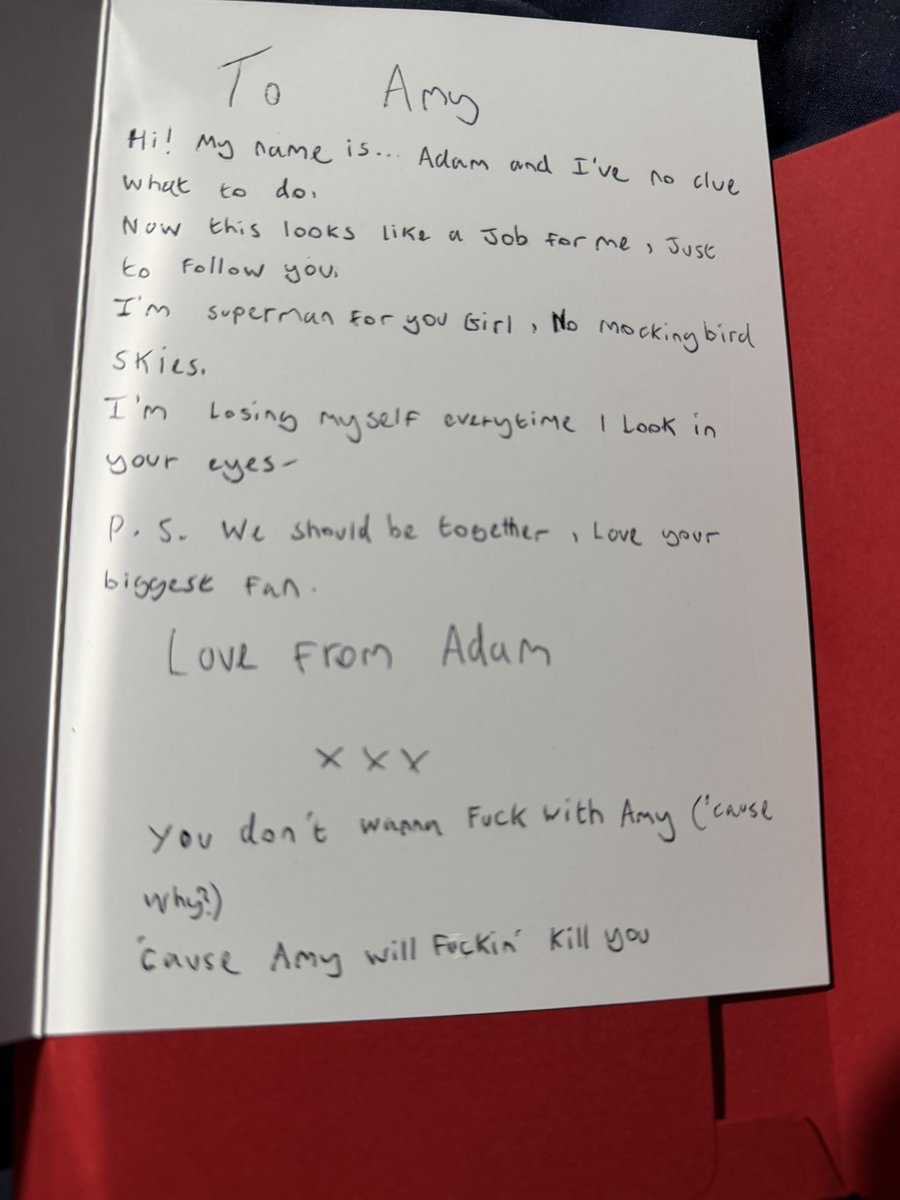 To Amy
Hi! My name is... Adam and I've no clue
what to do.
Now this looks like a Job for me, Just
to follow you.
I'm superman for you Girl, No mockingbird
skies.
I'm Losing myself everytime I Look in
your eyes-
P.S. We should be together, Love your
biggest fan.
Love From Adam
x x x
You don't wanna Fuck with Amy ('cause
why?)
'cause Amy will Fuckin' Kill you